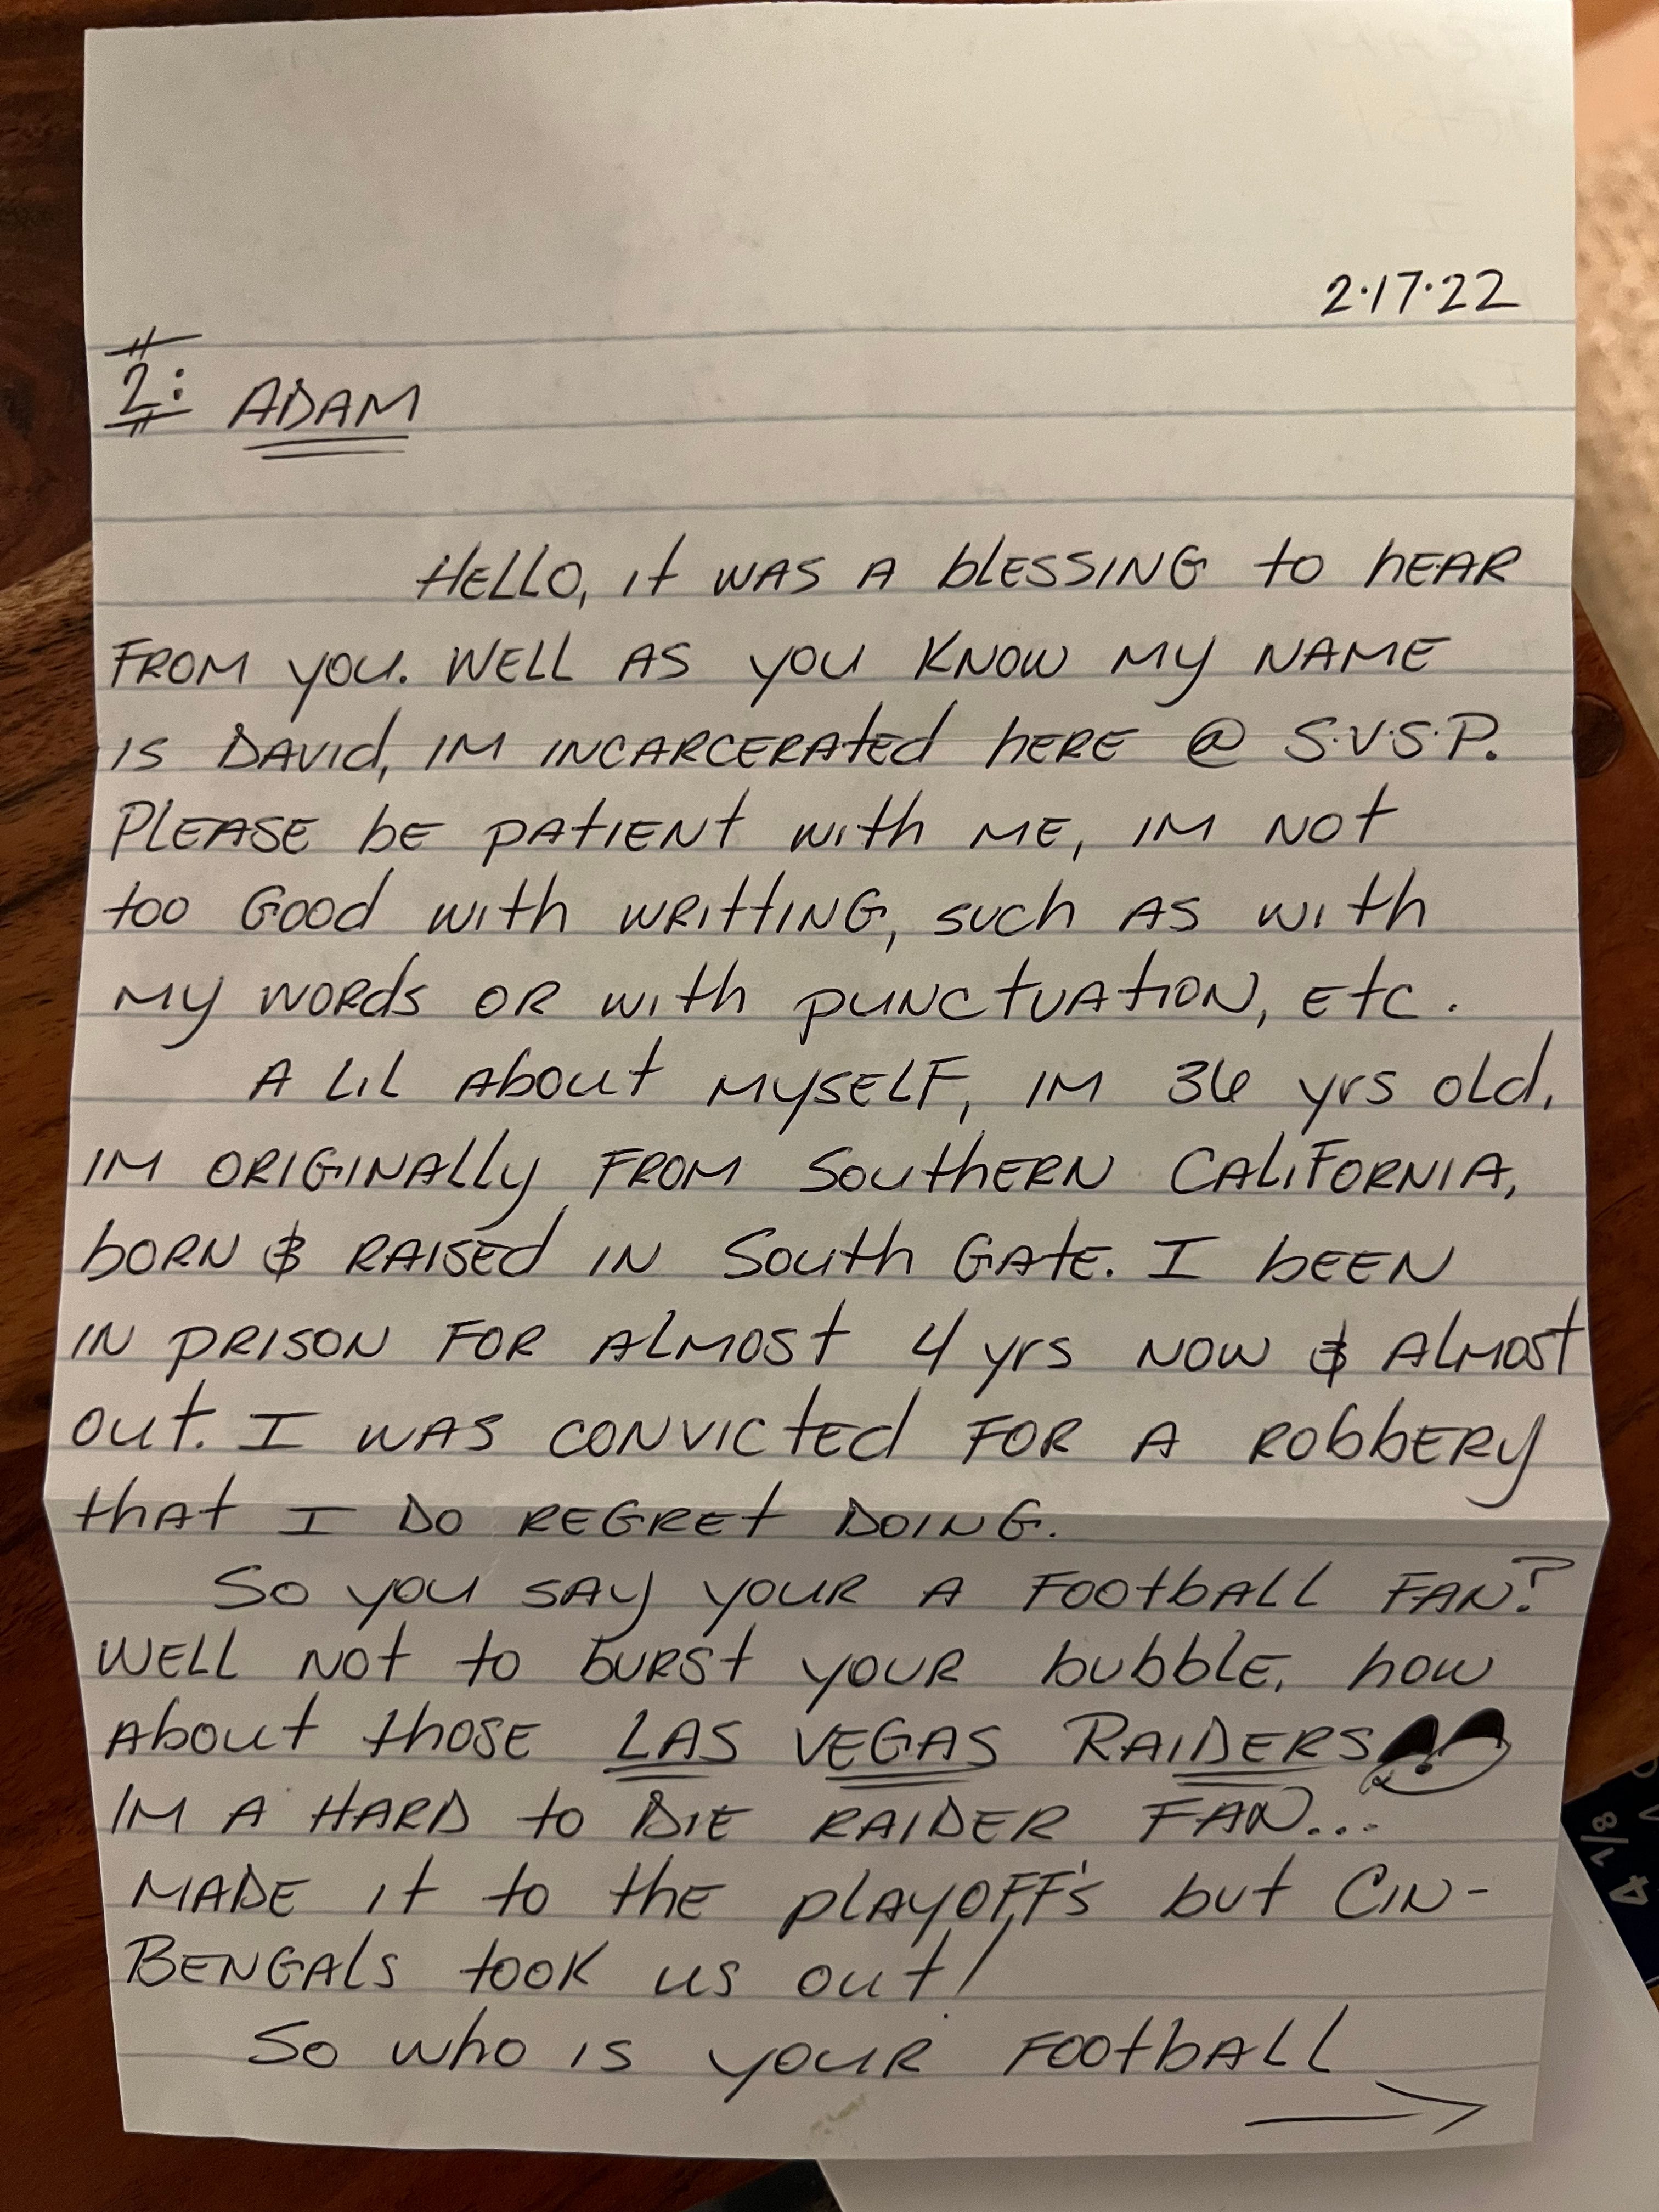 2·17·22
2: ADAM
Hello, it was a blessing to hear
from you. Well as you know my name
is David, im incarcerated here @ S.V.S.P.
Please be patient with me, im not
too good with writting, such as with
my words or with punctuation, etc.
A lil about myself, im 36 yrs old,
im originally from Southern California,
born & raised in South Gate. I been
in prison for almost 4 yrs now & almost
out. I was convicted for a robbery
that I do regret doing.
So you say your a football fan?
Well not to burst your bubble, how
about those Las Vegas Raiders
Im a hard to die Raider fan...
made it to the playoff's but Cin-
Bengals took us out!
So who is your football
4 1/8